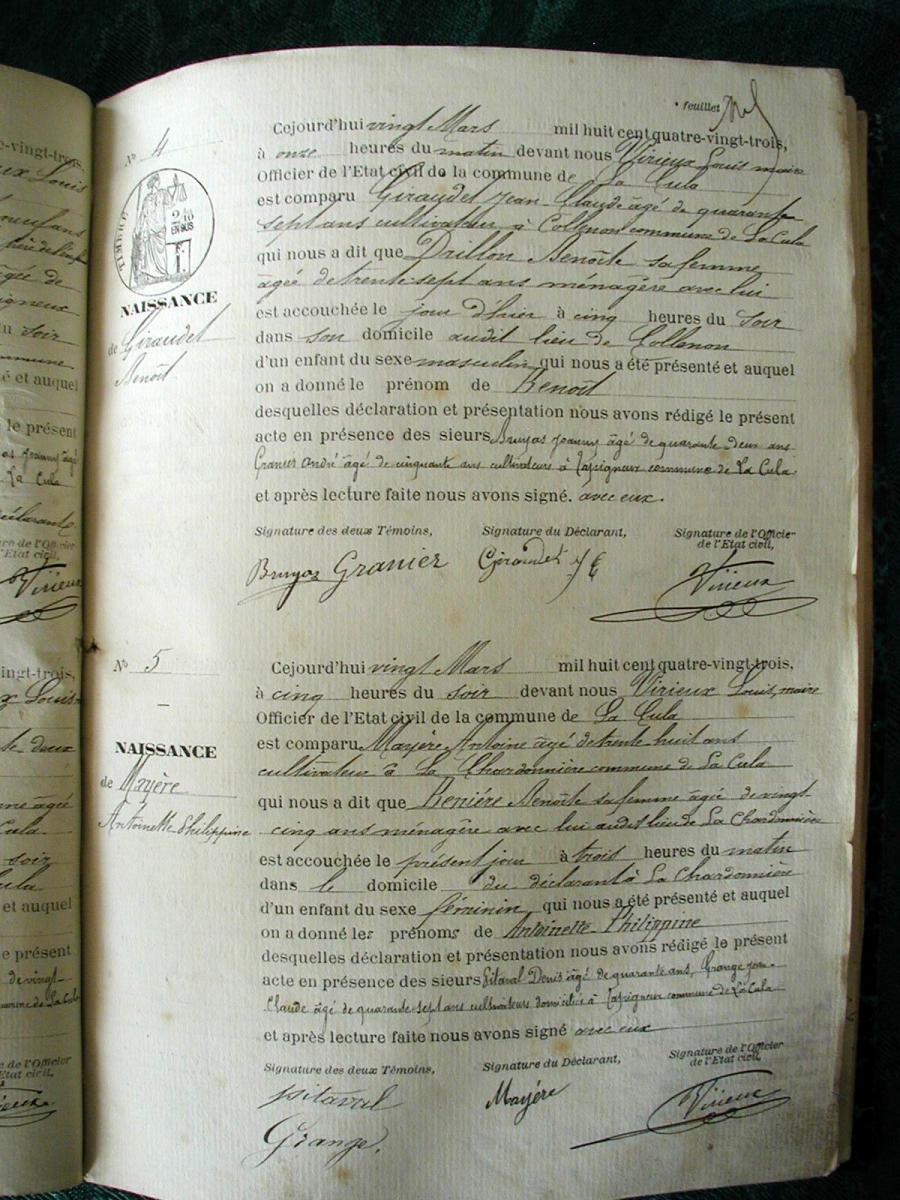 feuillet
-vingt-trois,
N° 4
Cejourd'hui vingt Mars mil huit cent quatre-vingt-trois,
à onze heures du matin devant nous Virieux Louis maire
Officier de l'Etat civil de la commune de La Cula
est comparu Giraudet Jean Claude âgé de quarante
sept ans cultivateur à Collenon commune de La Cula
qui nous a dit que Drillon Benoîte sa femme
âgée de trente sept ans ménagère avec lui
est accouchée le jour d'hier à cinq heures du soir
dans son domicile audit lieu de Collenon
d'un enfant du sexe masculin qui nous a été présenté et auquel
on a donné le prénom de Benoît
desquelles déclaration et présentation nous avons rédigé le présent
acte en présence des sieurs Bruyas Joanny âgé de quarante deux ans
Granier André âgé de cinquante ans cultivateurs à commune de La Cula
et après lecture faite nous avons signé. avec eux.
TIMBRE
2/10
EN SUS
NAISSANCE
de Giraudet
Benoît
Signature des deux Témoins, Signature du Déclarant, Signature de l'Officier
de l'Etat civil,
Bruyas Granier Giraudet J C Virieux
N° 5
Cejourd'hui vingt Mars mil huit cent quatre-vingt-trois,
à cinq heures du soir devant nous Virieux Louis, maire
Officier de l'Etat civil de la commune de La Cula
est comparu Mayère Antoine âgé de trente huit ans
cultivateur à La Chardonnière commune de La Cula
qui nous a dit que Benoîte sa femme âgée de vingt
cinq ans ménagère avec lui audit lieu de La Chardonnière
est accouchée le présent jour à trois heures du matin
dans le domicile du déclarant à La Chardonnière
d'un enfant du sexe féminin qui nous a été présenté et auquel
on a donné les prénoms de Antoinette Philippine
desquelles déclaration et présentation nous avons rédigé le présent
acte en présence des sieurs Pitaval Denis âgé de quarante ans, Grange Jean
Claude âgé de quarante sept ans cultivateurs domiciliés à commune de La Cula
et après lecture faite nous avons signé avec eux
NAISSANCE
de Mayère
Antoinette Philippine
Signature des deux Témoins, Signature du Déclarant, Signature de l'Officier
de l'Etat civil,
Pitaval Mayère Virieux
Grange.